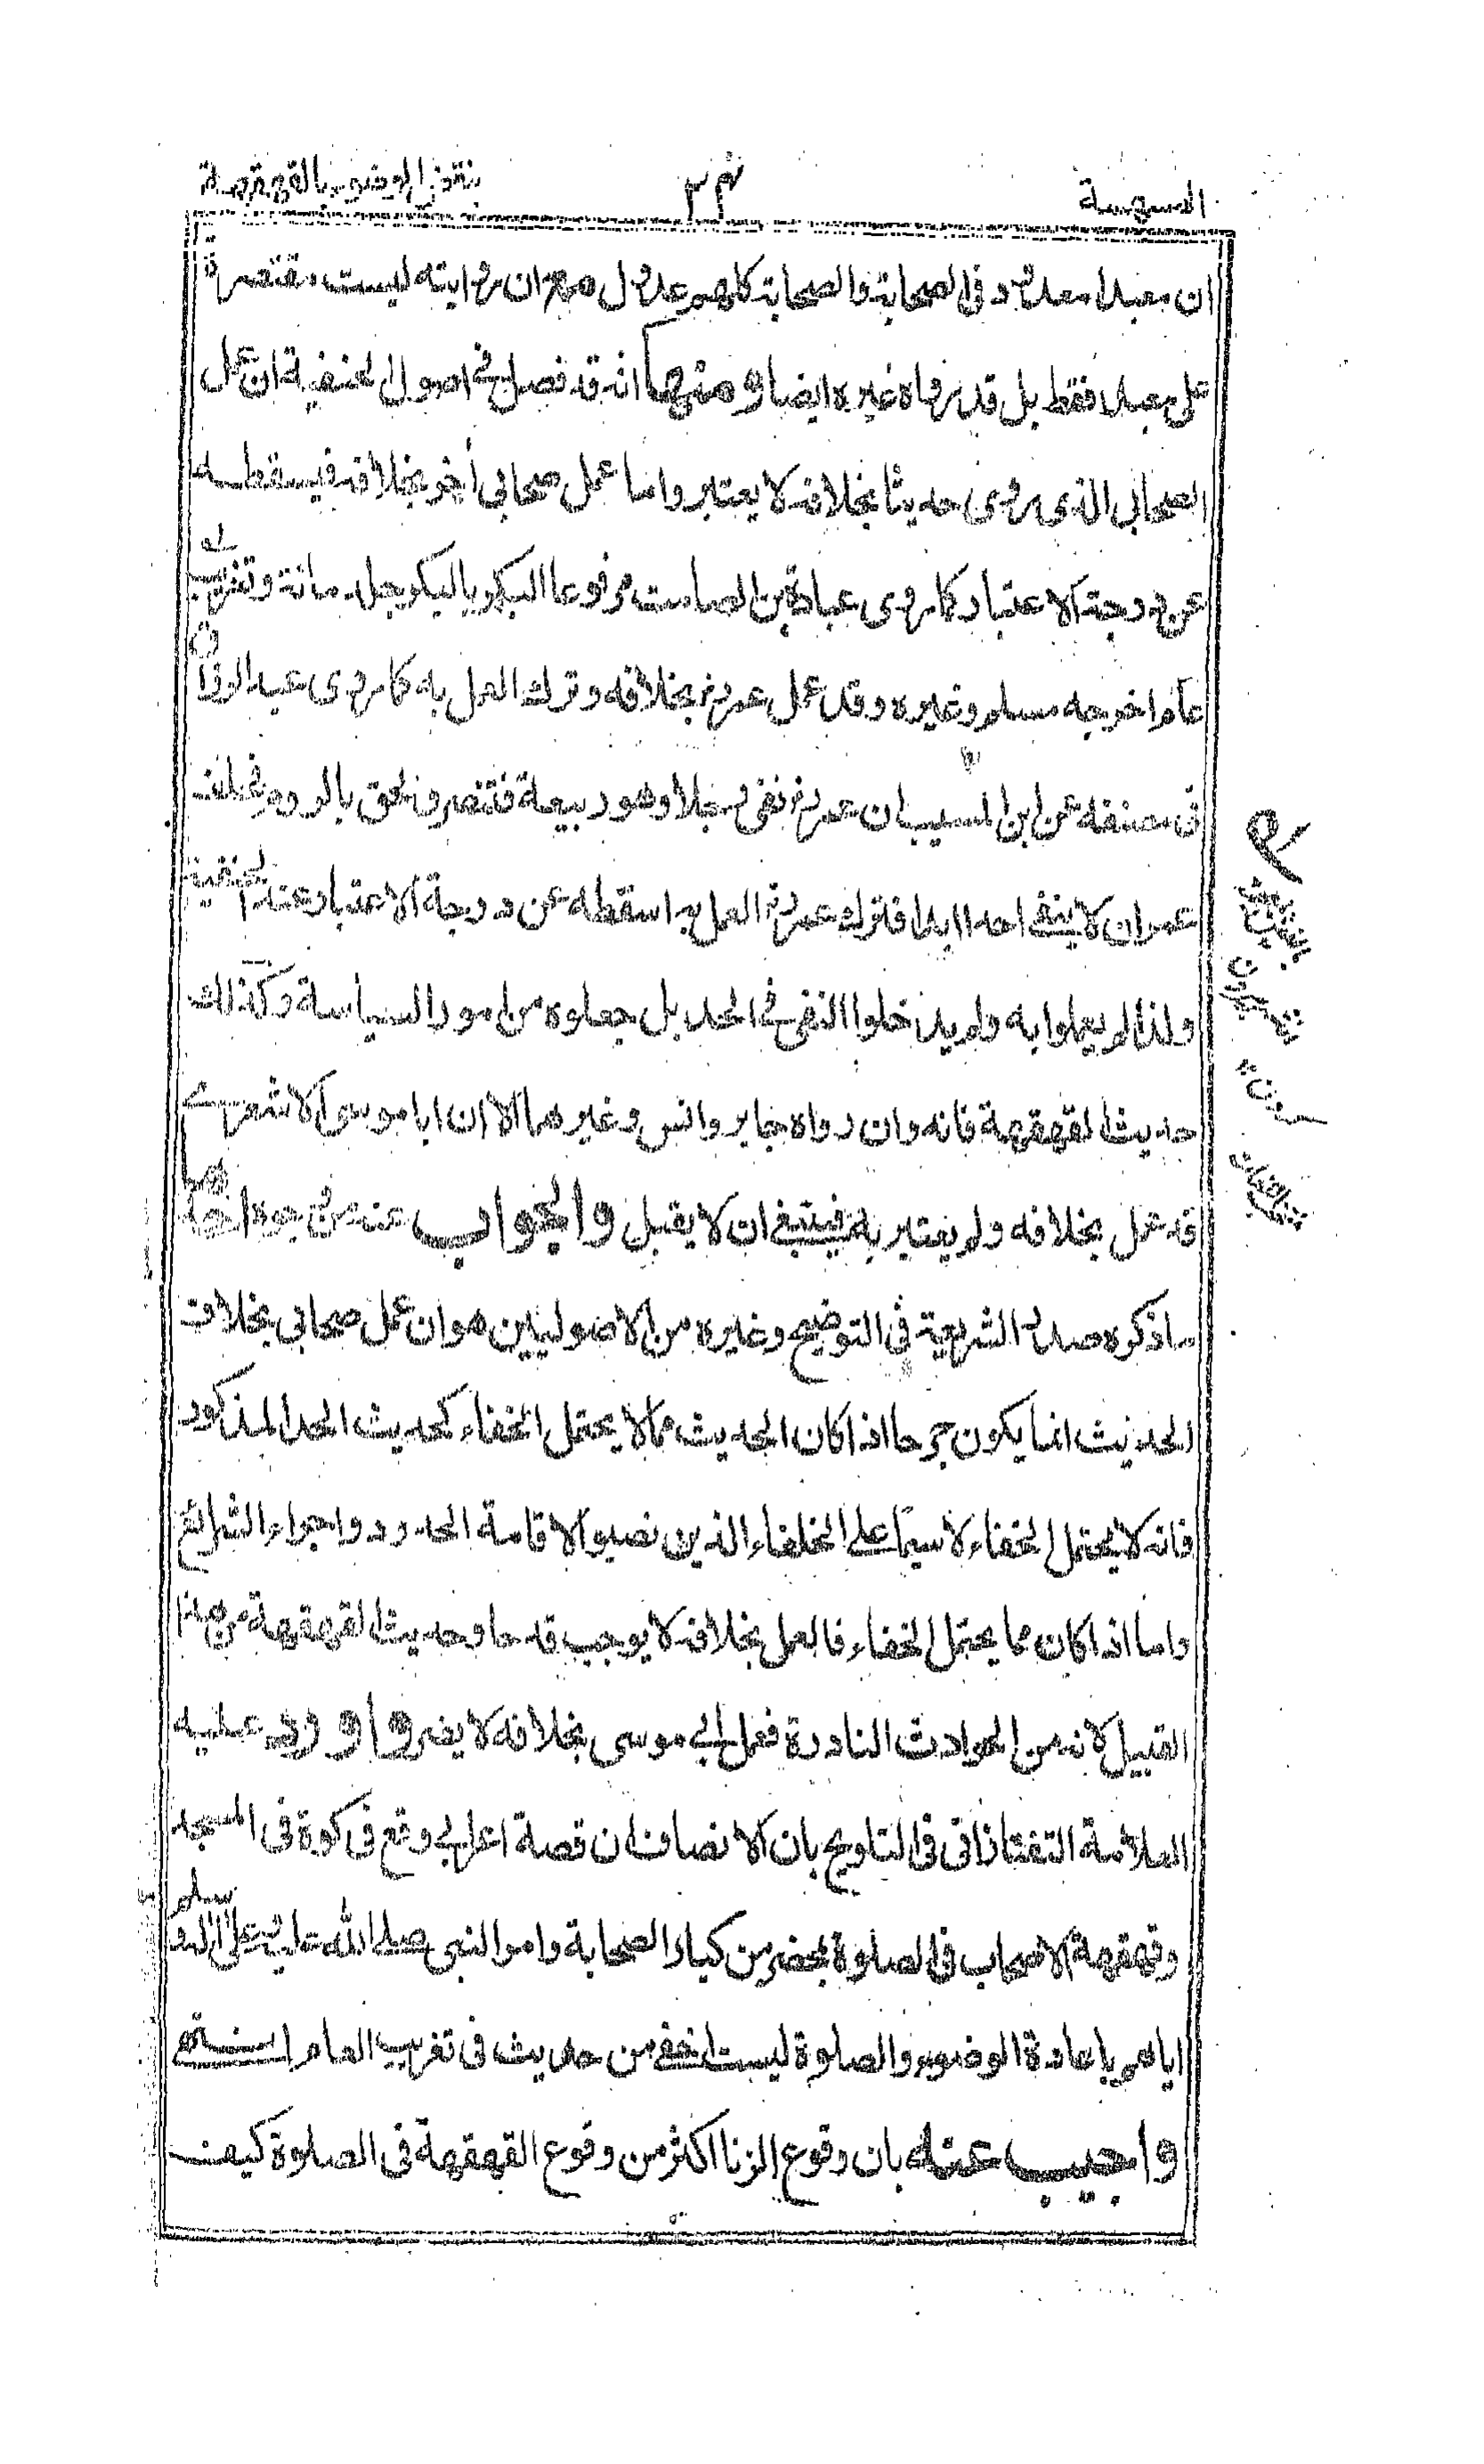 الهسهسة ٣٤ بنقض الوضوء بالقهقهة
ان معبدا معدود فی الصحابة والصحابة كلهم عدول مع ان روایته لیست مقتصرة
علی معبد فقط بل قد رواه غیره ایضا ومنها انه قد فصل فی اصول الحنفیة ان عمل
الصحابی الذی روی حدیثا بخلافه لا یعتبر واما عمل صحابی أخر بخلافه فیسقطه
عن درجة الاعتبار كما روی عبادة بن الصامت مرفوعا البكر بالبكر جلد مائة وتغریب
عام اخرجه مسلم وغیره وقد عمل عمر رض بخلافه وترك العمل به كما روی عبد الرزاق
فی مصنفه عن ابن المسیب ان عمر رض نفی رجلا وهو ربیعة فتنصر ولحق بالروم فحلف
عمر ان لا ینفی احدا ابدا فترك عمر رض العمل به اسقطه عن درجة الاعتبار عند الحنفیة
ولذا لم یعملوا به ولم یدخلوا النفی فی الحد بل جعلوه من امور السیاسة وكذلك
حدیث القهقهة فانه وان رواه جابر وانس وغیرهما الا ان ابا موسی الاشعری
قد عمل بخلافه ولم یعتبر به فینبغی ان لا یقبل والجواب عنه من وجوه احدها
ما ذكره صدر الشریعة فی التوضیح وغیره من الاصولیین هو ان عمل صحابی بخلاف
الحدیث انما یكون جرحا اذا كان الحدیث مما لا یحتمل الخفاء كحدیث الحد المذكور
فانه لا یحتمل الخفاء لا سیما علی الخلفاء الذین نصبوا لاقامة الحدود واجراء الشرائع
واما اذا كان مما یحتمل الخفاء فالعمل بخلافه لا یوجب قدحا وحدیث القهقهة من هذا
القبیل لانه من الحوادث النادرة فعمل ابی موسی بخلافه لا یضر واورد علیه
العلامة التفتازانی فی التلویح بان الانصاف ان قصة اعرابی وقع فی كوة فی المسجد
وقهقهة الاصحاب فی الصلوة بمحضر من كبار الصحابة وامر النبی صلی الله علیه وعلی آله وسلم
ایاهم باعادة الوضوء والصلوة لیست اخفی من حدیث فی تغریب العام انتهی
واجیب عنه بان وقوع الزنا اكثر من وقوع القهقهة فی الصلوة كیف